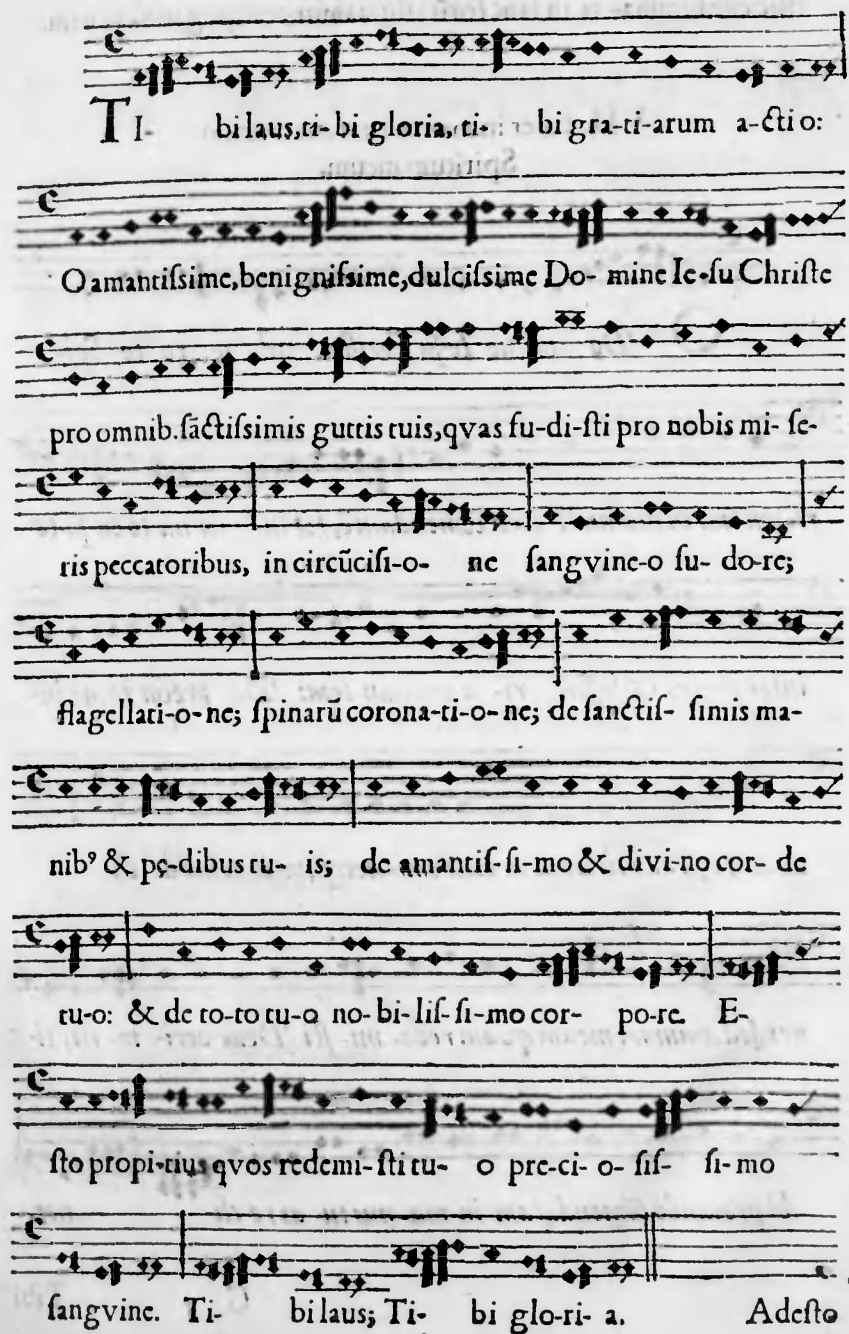 TI- bi laus, ti-bi gloria, ti- bi gra-ti-arum a-ctio:
O amantiſsime, benigniſsime, dulciſsime Do- mine Ie-ſu Chriſte
pro omnib. ſãctiſsimis guttis tuis, qvas fu-di-ſti pro nobis mi- ſe-
ris peccatoribus, in circũciſi-o- ne ſangvine-o ſu- do-re;
flagellati-o-ne; ſpinarũ corona-ti-o-ne; de ſanctiſ- ſimis ma-
nibꝰ & pę-dibus tu- is; de amantiſ-ſi-mo & divi-no cor- de
tu-o: & de to-to tu-o no-bi-liſ-ſi-mo cor- po-re. E-
ſto propi-tius qvos redemi-ſti tu- o pre-ci-o-ſiſ- ſi-mo
ſangvine. Ti- bi laus; Ti- bi glo-ri-a. Adeſto